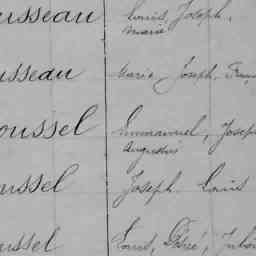 usseau Louis, Joseph,
Marie
usseau Marie Joseph, Fran
oussel Emmanuel, Josep
Augustin
oussel Joseph Louis
oussel Louis, Désiré, Julien